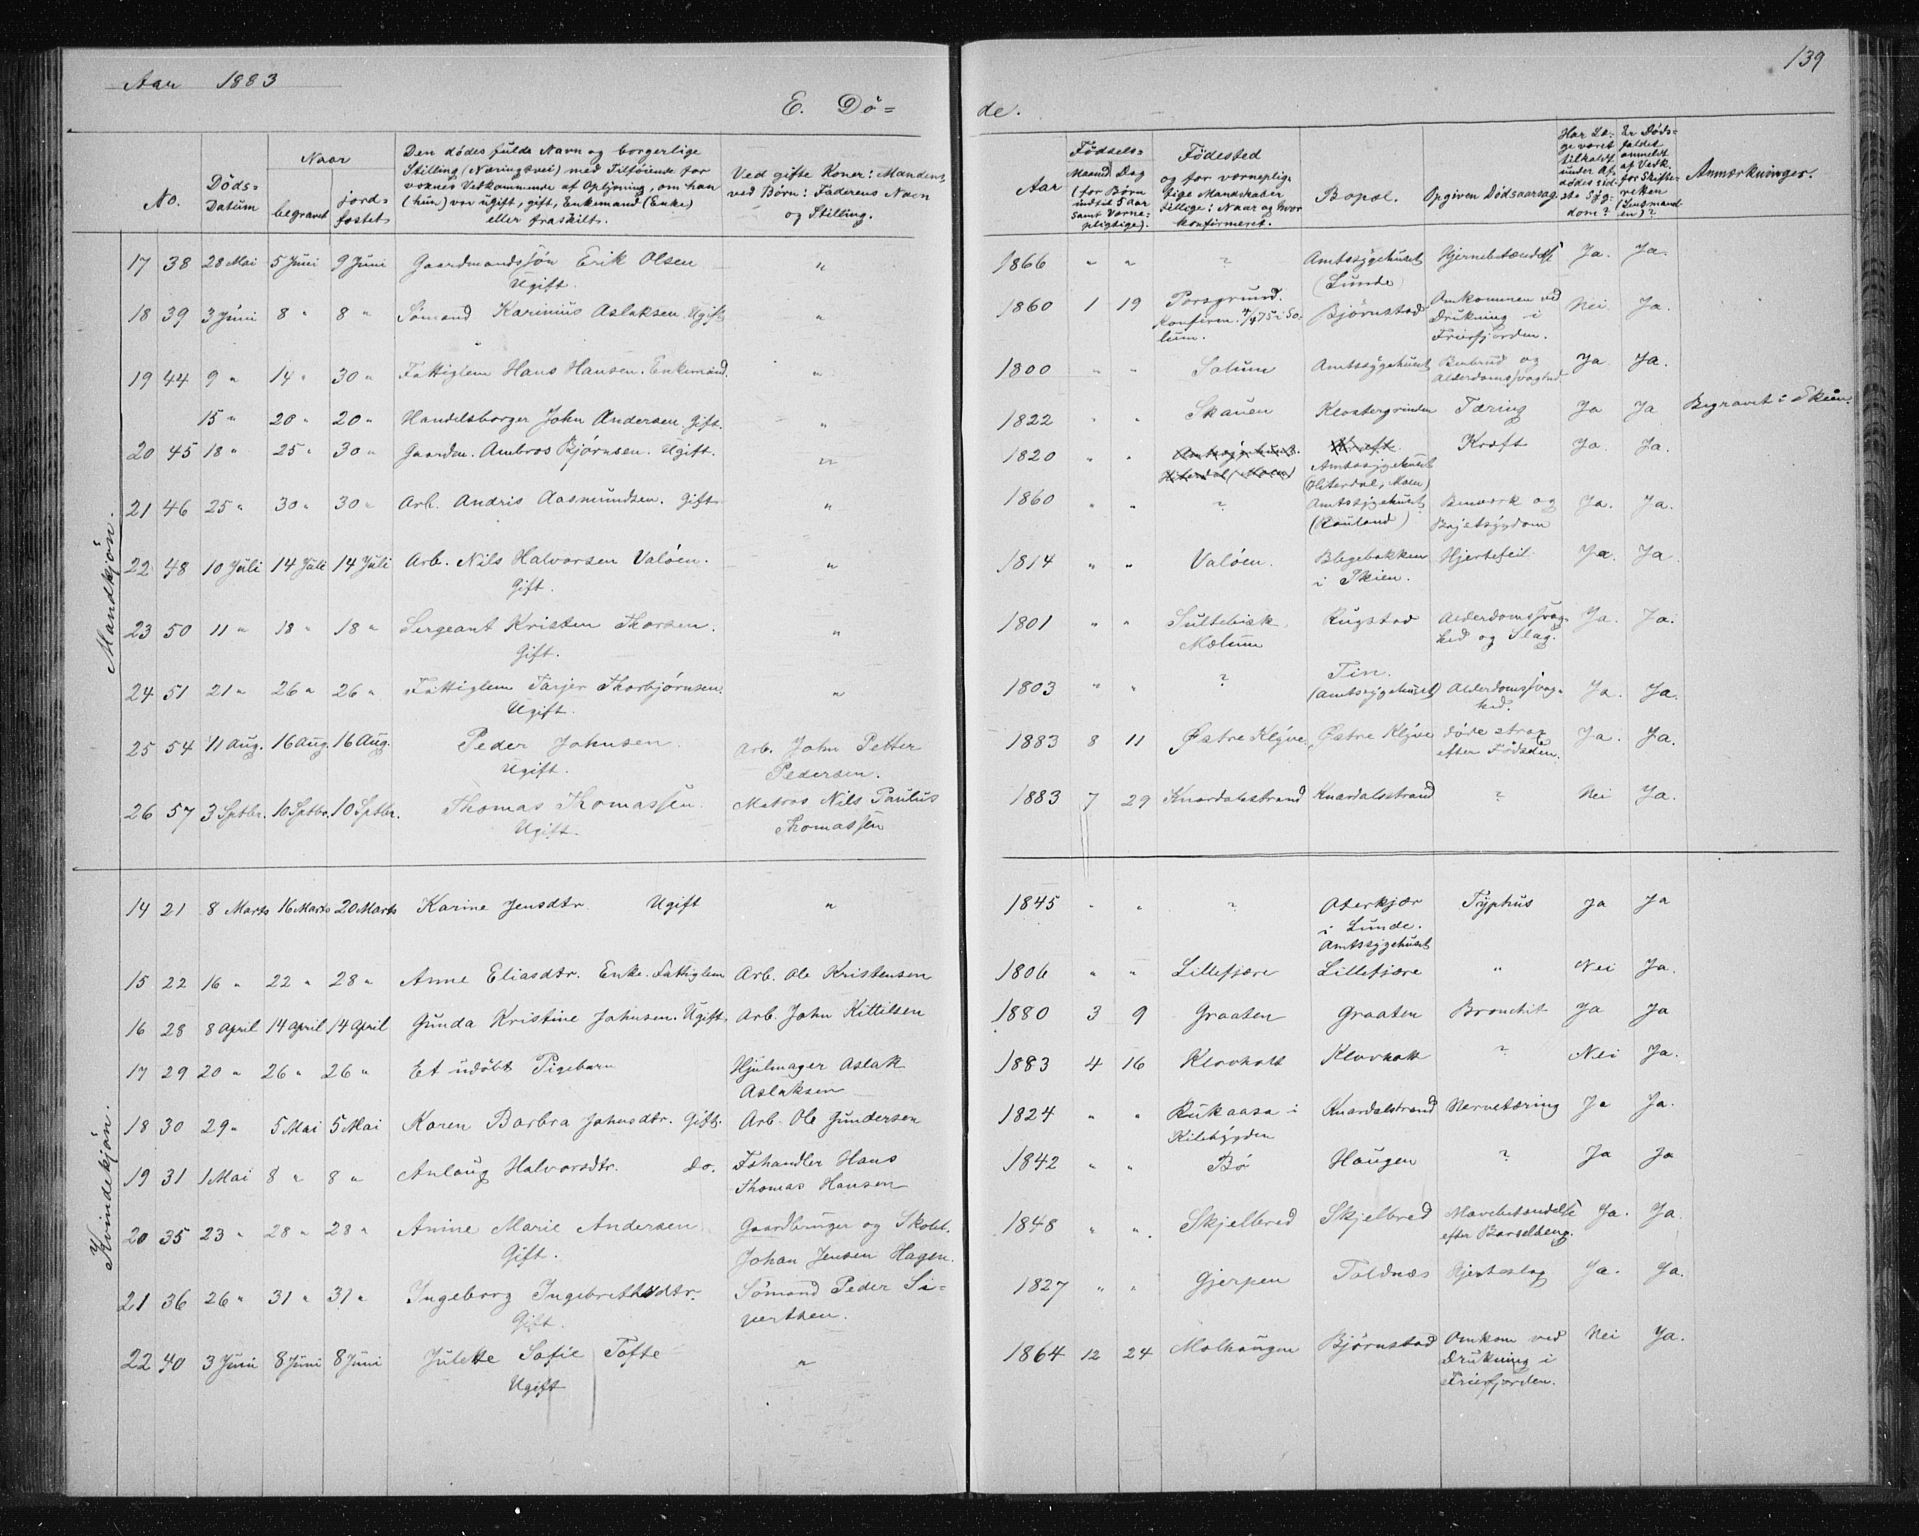 Aar 1883
139
E. Dö=
de.
No.
Döds-Datum
Naar
begravet
jord-fæstet
Den dödes fulde Navn og borgerlige
Stilling (Næringsvei) med Tilföiende for
voxnes Vedkommende af Oplysning, om han
(hun) var ugift, gift, Enkemand (Enke)
eller fraskilt.
Ved gifte Koner: Mandens,
ved Börn: Faderens Navn
og Stilling.
Aar
Födsels-
Maaned Dag
(for Börn
indtil 5 Aar
samt Værne-
pligtige).
Födested
og for værneplig-
tige Mandskaber
tillige: Naar og hvor
konfirmeret.
Bopæl.
Opgiven Dödsaarsag.
Har Læ-
ge været
tilkaldt
under Af-
dödes sid-
ste Syg-
dom?
Er Döds-
faldet
anmeldt
af Vedk.
for Skifte-
retten
(Lensmand-
en)?
Anmærkninger.
Mandkjön.
17 38 28 Mai 5 Juni 9 Juni Gaardmandssön Erik Olsen " 1866 " " ? Amtssygehuset Hjernebetændelse Ja. Ja.
Ugift. (Lunde)
18 39 3 Juni 8 " 8 " Sömand Karinius Aslaksen. Ugift " 1860 1 19 Porsgrund. Bjørnstad Omkommen ved Nei Ja.
Konfirm. 4/4 75 i So- Drukning i
lum. Frierfjorden.
19 44 9 " 14 " 30 " Fattiglem Hans Hansen. Enkemand. " 1800 " " Solum Amtssygehuset Benbrud og Ja Ja.
Alderdomssvaghed.
15 " 20 " 20 " Handelsborger John Andersen. Gift. " 1822 " " Skauen Klostergrinden Tæring Ja Ja Begravet i Skien.
20 45 18 " 25 " 30 " Gaardm. Ambros Bjørnsen. Ugift. " 1820 " " Kræft Ja. Ja.
Amtssygehuset
(Hiterdal, Moen)
21 46 25 " 30 " 30 " Arb. Andris Aasmundsen. Gift " 1860 " " ? Amtssygehuset Benværk og Ja. Ja.
(Rauland) Brystsygdom
22 48 10 Juli 14 Juli 14 Juli Arb. Nils Halvorsen Valöen. " 1814 " " Valöen. Blegebakken Hjertefeil Ja. Ja.
Gift. i Skien.
23 50 11 " 18 " 18 " Sergeant Kristen Thorsen. " 1801 " " Rugstad Alderdomssvag- Ja. Ja.
Gift. Mælum hed og Slag.
24 51 21 " 26 " 26 " Fattiglem Tarjer Thorbjørnsen. " 1803 " " ? Tin. Alderdomssvag- Ja. Ja.
Ugift. (Amtssygehuset) hed.
25 54 11 Aug. 16 Aug. 16 Aug. Peder Johnsen. Arb. John Petter 1883 8 11 Østre Klyve. Østre Klyve döde strax Ja. Ja.
Ugift. Pedersen. efter Födselen.
26 57 3 Sptbr. 10 Sptbr. 10 Sptbr. Thomas Thomassen. Matros Nils Paulus 1883 7 29 Knardalsstrand Knardalsstrand ? Nei Ja.
Ugift. Thomassen
Kvindekjön.
14 21 8 Marts 16 Marts 20 Marts Karine Jensdtr. Ugift " 1845 " " ? Aterkjær Typhus Ja Ja
i Lunde.
Amtssygehuset
15 22 16 " 22 " 28 " Anne Eliasdtr. Enke. Fattiglem Arb. Ole Kristensen 1806 " " Lillefjære Lillefjære " Nei Ja.
16 28 8 April 14 April 14 April Gunda Kristine Johnsen. Ugift. Arb. John Kittilsen 1880 3 9 Graaten Graaten Bronchit Ja Ja
17 29 20 " 26 " 26 " Et udöbt Pigebarn Hjulmager Aslak 1883 4 16 Klovholt Klovholt ? Nei Ja.
Aslaksen
18 30 29 " 5 Mai 5 Mai Karen Barbra Johnsdtr. Gift. Arb. Ole Gundersen 1824 " " Rukaasa i Knardalstrand Nervetæring Ja Ja.
Kilebygden
19 31 1 Mai 8 " 8 " Anlaug Halvorsdtr. do. Fshandler Hans 1842 " " Bö Haugen ? Ja Ja
Thomas Hansen
20 35 23 " 28 " 28 " Anine Marie Andersen Gaardbruger og Skolel. 1848 " " Skjelbred Skjelbred Mavebetændelse Ja. Ja.
Gift. Johan Jensen Hagen. efter Barselseng.
21 36 26 " 31 " 31 " Ingeborg Ingebrethsdtr. Sömand Peder Si- 1827 " " Gjerpen Toldnæs Hjerteslag Ja. Ja.
Gift. vertsen.
22 40 3 Juni 8 Juni 8 Juni Julette Sofie Tofte " 1864 12 24 Molhaugen Bjørnstad Omkom ved Nei Ja.
Ugift Drukning i
Frierfjorden.